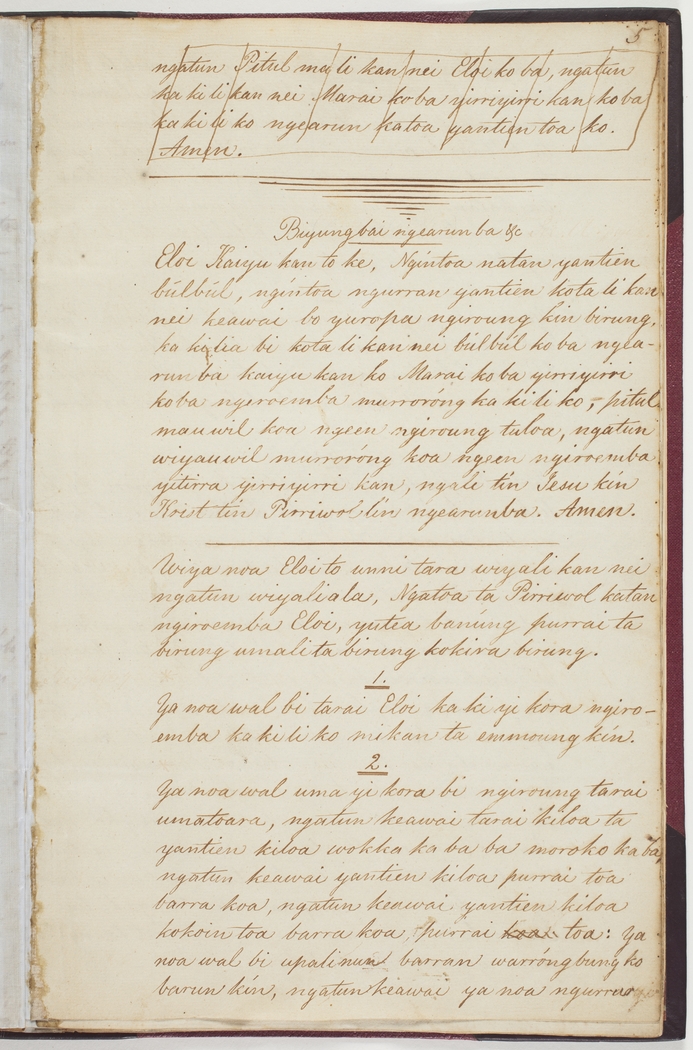 5
ngatun Pitul ma li kan nei Eloi ko ba, ngatun
ka ki li kan nei Marai ko ba yirriyirri kan ko ba
ka ki li ko ngearun katoa yantien toa ko.
Amen.
Biyungbai ngearunba &c
Eloi Kaiyu kan to ke, Ngintoa natan yantien
búlbúl, ngíntoa ngurran yantien kota li kan
nei keawai bo yuropa ngiroung kin birung,
ka kilia bi kota li kan nei búlbúl ko ba ngea-
runba kaiyu kan ko Marai ko ba yirriyirri
koba ngeroemba murroróng ka ki li ko, pitul
mauwil koa ngeen ngiroung tuloa, ngatun
wiyauwil murroróng koa ngeen ngiroemba
yitirra yirriyirri kan, ngali tin Iesu kín
Krist tin Pirriwol lin ngearunba. Amen.
Wiya noa Eloi to unni tara wiyali kan nei
ngatun wiyaliala, Ngatoa ta Pirriwol katan
ngiroemba Eloi, yutea banúng purrai ta
birung umali ta birung kokira birung.
1.
Ya noa wal bi tarai Eloi ka ki yi kora ngiro-
emba ka ki li ko mikan ta emmoung kin.
2.
Ya noa wal uma yi kora bi ngiroung tarai
umatoara, ngatun keawai tarai kiloa ta
yantien kiloa wokka ka ba ba moroko ka ba,
ngatun keawai yantien kiloa purrai toa
barra koa, ngatun keawai yantien kiloa
kokoin toa barra koa, purrai koa toa: ya
noa wal bi upalinun barran warróngbung ko
barun kín, ngatun keawai ya noa